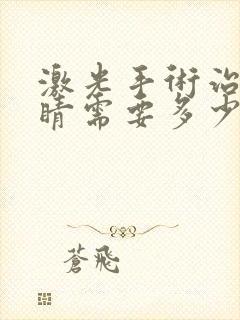 激光手術治
睛需要多少
蒼飛